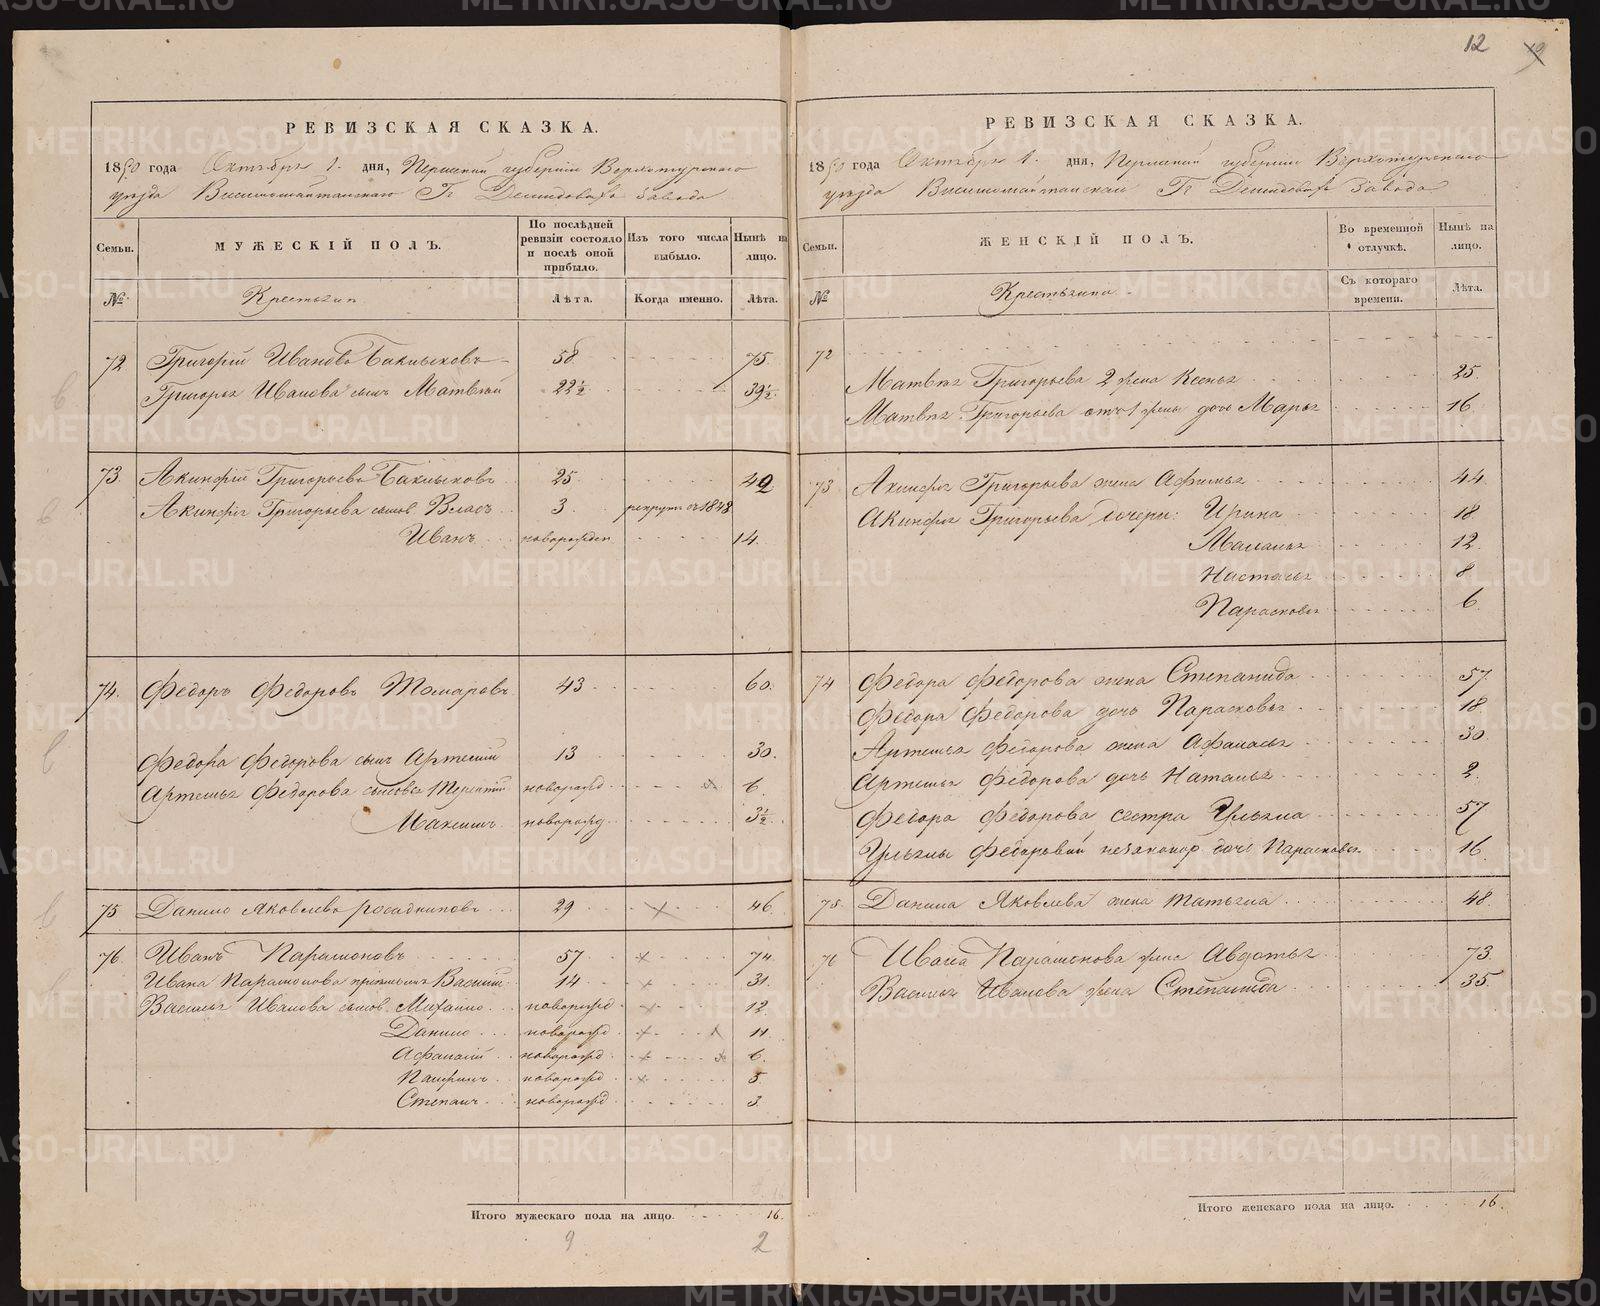 12 19
РЕВИЗСКАЯ СКАЗКА.
1850 года Октября 1. дня, Пермской губернии Верхотурскаго
уезда Висимошайтанскаго Гг Демидовыхъ завода
Семьи.
МУЖЕСКІЙ ПОЛЪ.
По послѣдней ревизіи состояло и послѣ оной прибыло.
Изъ того числа выбыло.
Нынѣ на лицо.
№
Крестьяни
Лѣта.
Когда именно.
Лѣта.
72 Григорій Ивановъ 58 75
Григорья Иванова сынъ Матвѣй 22½ 39½
73 Акинфій Григорьевъ 25 42
Акинфія Григорьева сынов. Власъ 3 рекрутъ съ 1848
Иванъ новорожден 14.
74. Федоръ Федоровъ 43 60.
Федора Федорова сынъ Артемій 13 30.
Артемья Федорова сыновья 1 Терентій новорожд 6.
Максимъ новорожд. 3½
75 Данило Яковлевъ 29 46
76. Иванъ Парамоновъ 57 74
Ивана Парамонова Василій 14 31
Василья Иванова сынов. Михайло новорожд 12.
Данило новорожд 11
Афанасій новорожд 6.
Памфилъ новорожд 5
Степанъ новорожд 3
Итого мужескаго пола на лицо. 16.
9 2
РЕВИЗСКАЯ СКАЗКА.
1850 года Октября 1. дня, Пермской губернии Верхотурскаго
уезда Висимошайтанскаго Гг Демидовыхъ завода
Семьи.
ЖЕНСКІЙ ПОЛЪ.
Во временной отлучкѣ.
Нынѣ на лицо.
№
Съ котораго времени.
Лѣта.
72
Матвѣя Григорьева 2 жена Ксенья 25.
Матвѣя Григорьева отъ 1 жены дочь Марья 16
73 Акинфія Григорьева жена Афимья 44
Акинфія Григорьева дочери: Ирина 18
Маланья 12
Настасья 8
Парасковья 6
74 Федора Федорова жена Степанида 57
Федора Федорова дочь Парасковья 18
Артемья Федорова жена Афанасья 30
Артемья Федорова дочь Наталья 2.
Федора Федорова сестра Ульяна 57
Ульяны Федоровой незаконор дочь Парасковья 16
75 Данила Яковлева жена Татьяна 48
76 Ивана Парамонова жена Авдотья 73
Василья Иванова жена Степанида 35
Итого женскаго пола на лицо. 16.
METRIKI.GASO-URAL.RU